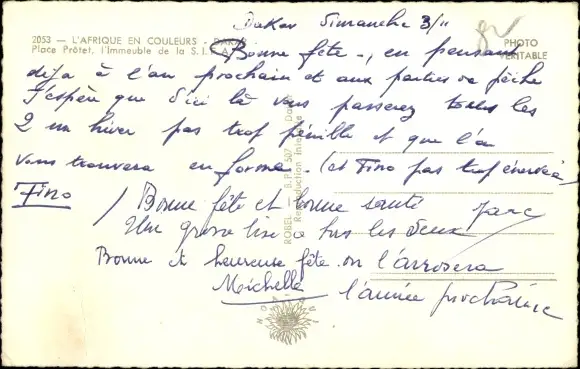 Dakar Dimanche 3/11
2053 — L'AFRIQUE EN COULEURS - DAKAR
Place Prôtet, l'Immeuble de la S.I.
PHOTO
VÉRITABLE
Bonne fête -, en pensant
déjà à l'an prochain et aux parties de pêche
J'espère que d'ici là vous passerez tous les
2 un hiver pas trop pénible et que l'on
vous trouvera en forme. (et Fino pas trop énervée)
Fino
Bonne fête et bonne santé Marc
Une grosse bise à tous les deux
Bonne et heureuse fête on l'arrosera
Michelle l'année prochaine
ROBEL — B.P. 507 — Dakar
Reproduction interdite